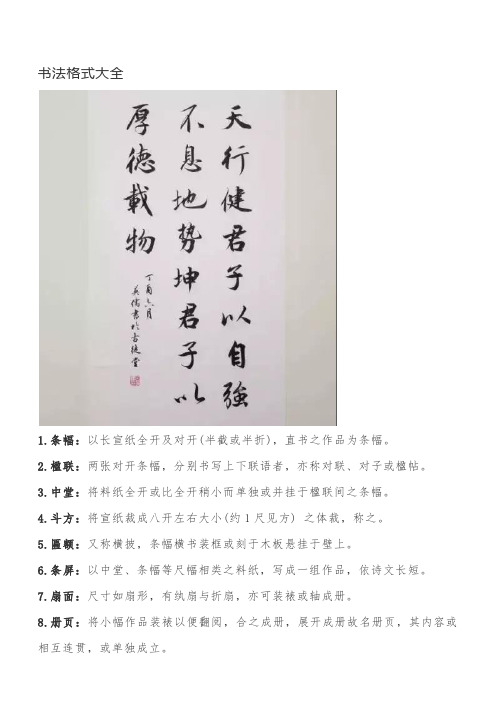 书法格式大全
天行健君子以自強
不息地勢坤君子以
厚德載物
丁酉六月
1.条幅：以长宣纸全开及对开(半截或半折)，直书之作品为条幅。
2.楹联：两张对开条幅，分别书写上下联语者，亦称对联、对子或楹帖。
3.中堂：将料纸全开或比全开稍小而单独或并挂于楹联间之条幅。
4.斗方：将宣纸裁成八开左右大小(约1尺见方) 之体裁，称之。
5.匾额：又称横披，条幅横书装框或刻于木板悬挂于壁上。
6.条屏：以中堂、条幅等尺幅相类之料纸，写成一组作品，依诗文长短。
7.扇面：尺寸如扇形，有纨扇与折扇，亦可装裱或轴成册。
8.册页：将小幅作品装裱以便翻阅，合之成册，展开成册故名册页，其内容或
相互连贯，或单独成立。